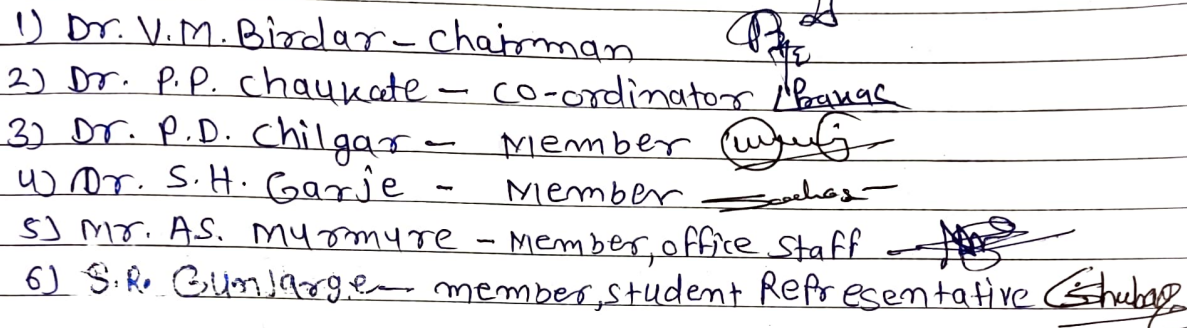 1) Dr. V.M. Birdar - Chairman
2) Dr. P.P. Chaukate - CO-ordinator
3) Dr. P.D. Chilgar - Member
4) Dr. S.H. Garje - Member
5) Mr. AS. Murmure - Member, office Staff
6) S.R. member, student Representative